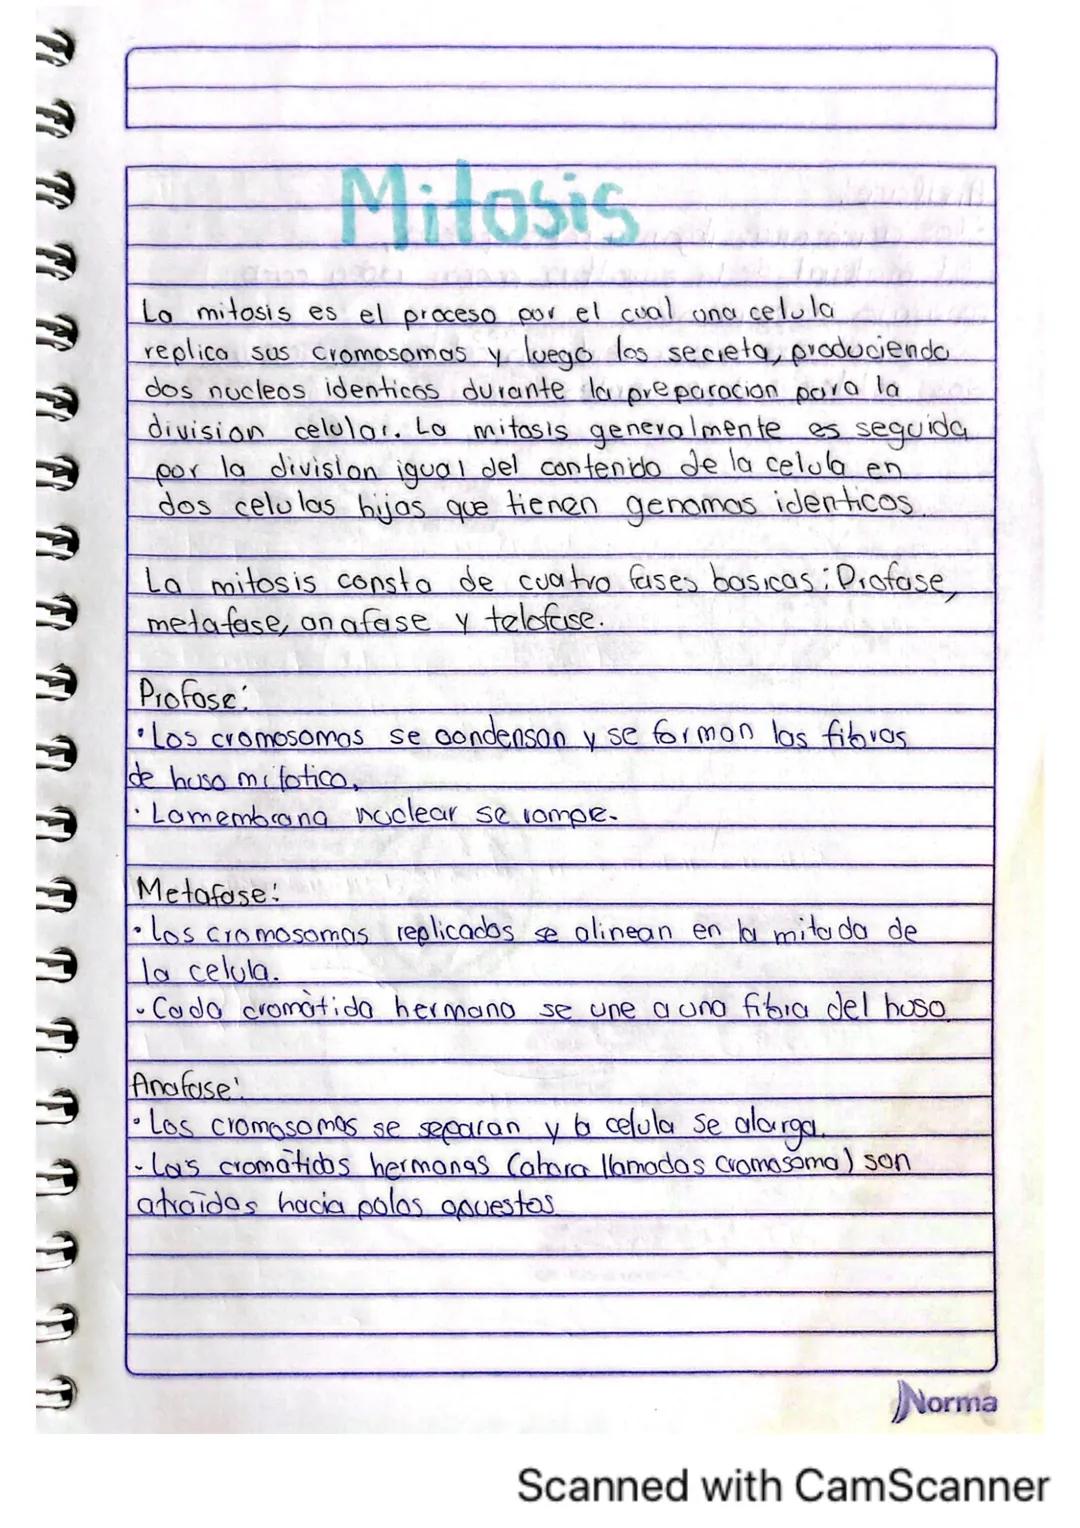 Mitosis
La mitosis es el proceso por el cual una celula
replica sus cromosomas y luego los secreta, produciendo
dos nucleos identicos durante la preparacion para la
division celular. La mitosis generalmente es seguida
por la division igual del contenido de la celula en
dos celulas hijas que tienen genomas identicos.
La mitosis consta de cuatro fases basicas: Profase,
metafase, anafase y telofase.
Profase:
• Los cromosomas se condensan y se forman las fibras
de huso mitotico.
• La membrana nuclear se rompe.
Metafase:
• Los cromosomas replicados se alinean en la mitada de
la celula.
• Cada cromátida hermana se une a una fibra del huso
Anafase:
• Los cromosomas se separan y la celula se alarga.
• Las cromátidas hermanas (ahora llamadas cromosoma) son
atraídas hacia polos opuestos
Norma
Scanned with CamScanner